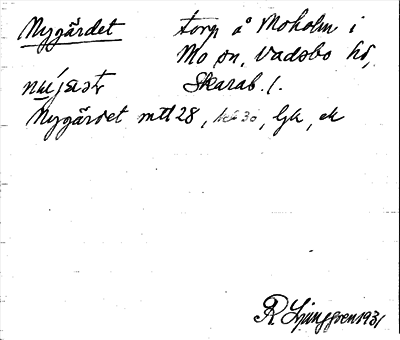 Nygärdet torp å Moholm i
Mo sn, Vadsbo hd,
Skarab. l.
Nygärdet mtl 28, hek 30, Gk, ek
R Ljunggren 1931